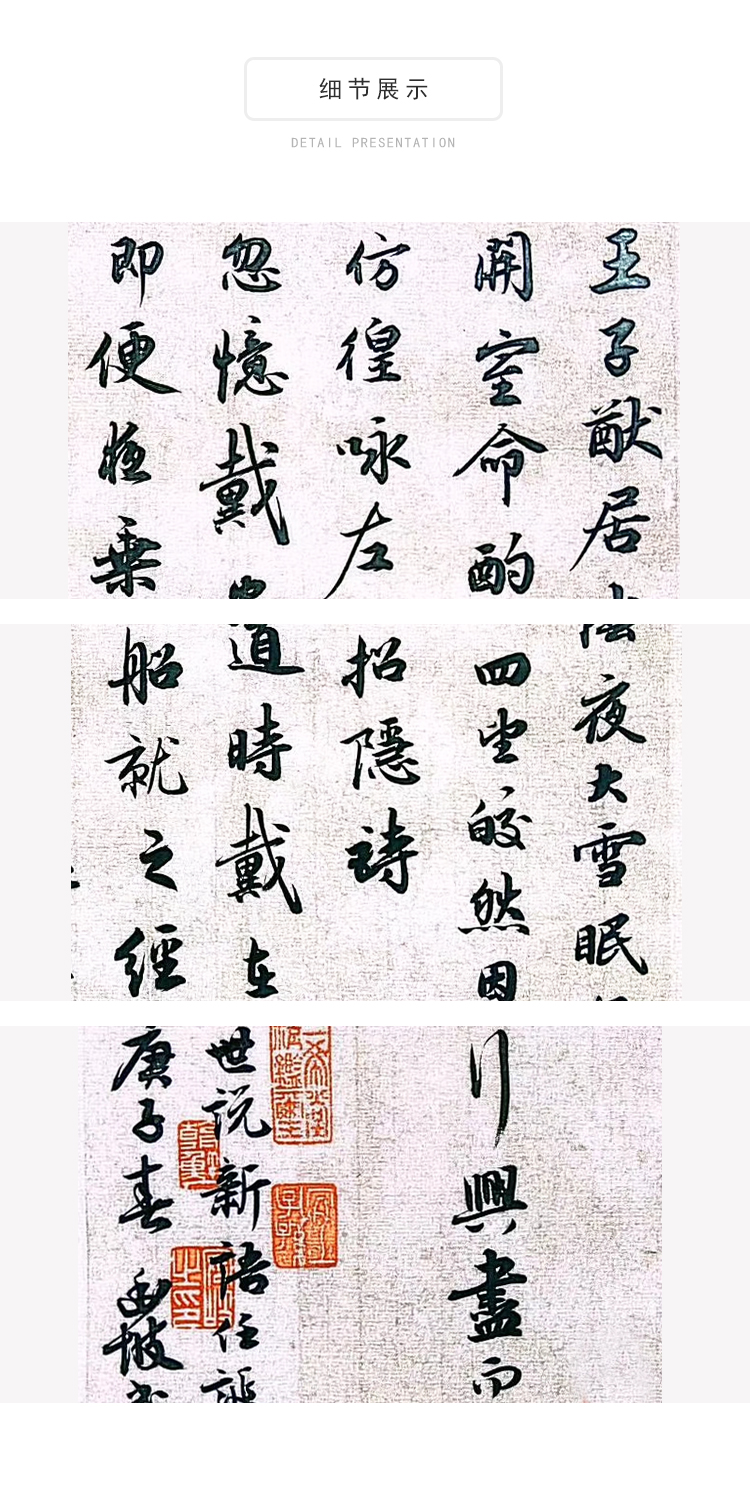 细节展示
DETAIL PRESENTATION
王子猷居
開室命酌
仿徨咏左
忽憶戴
即便夜乗
陰夜大雪眠
四望皎然因
招隱詩
道時戴在
船就之經
行興盡而
世说新語任誕
庚子春